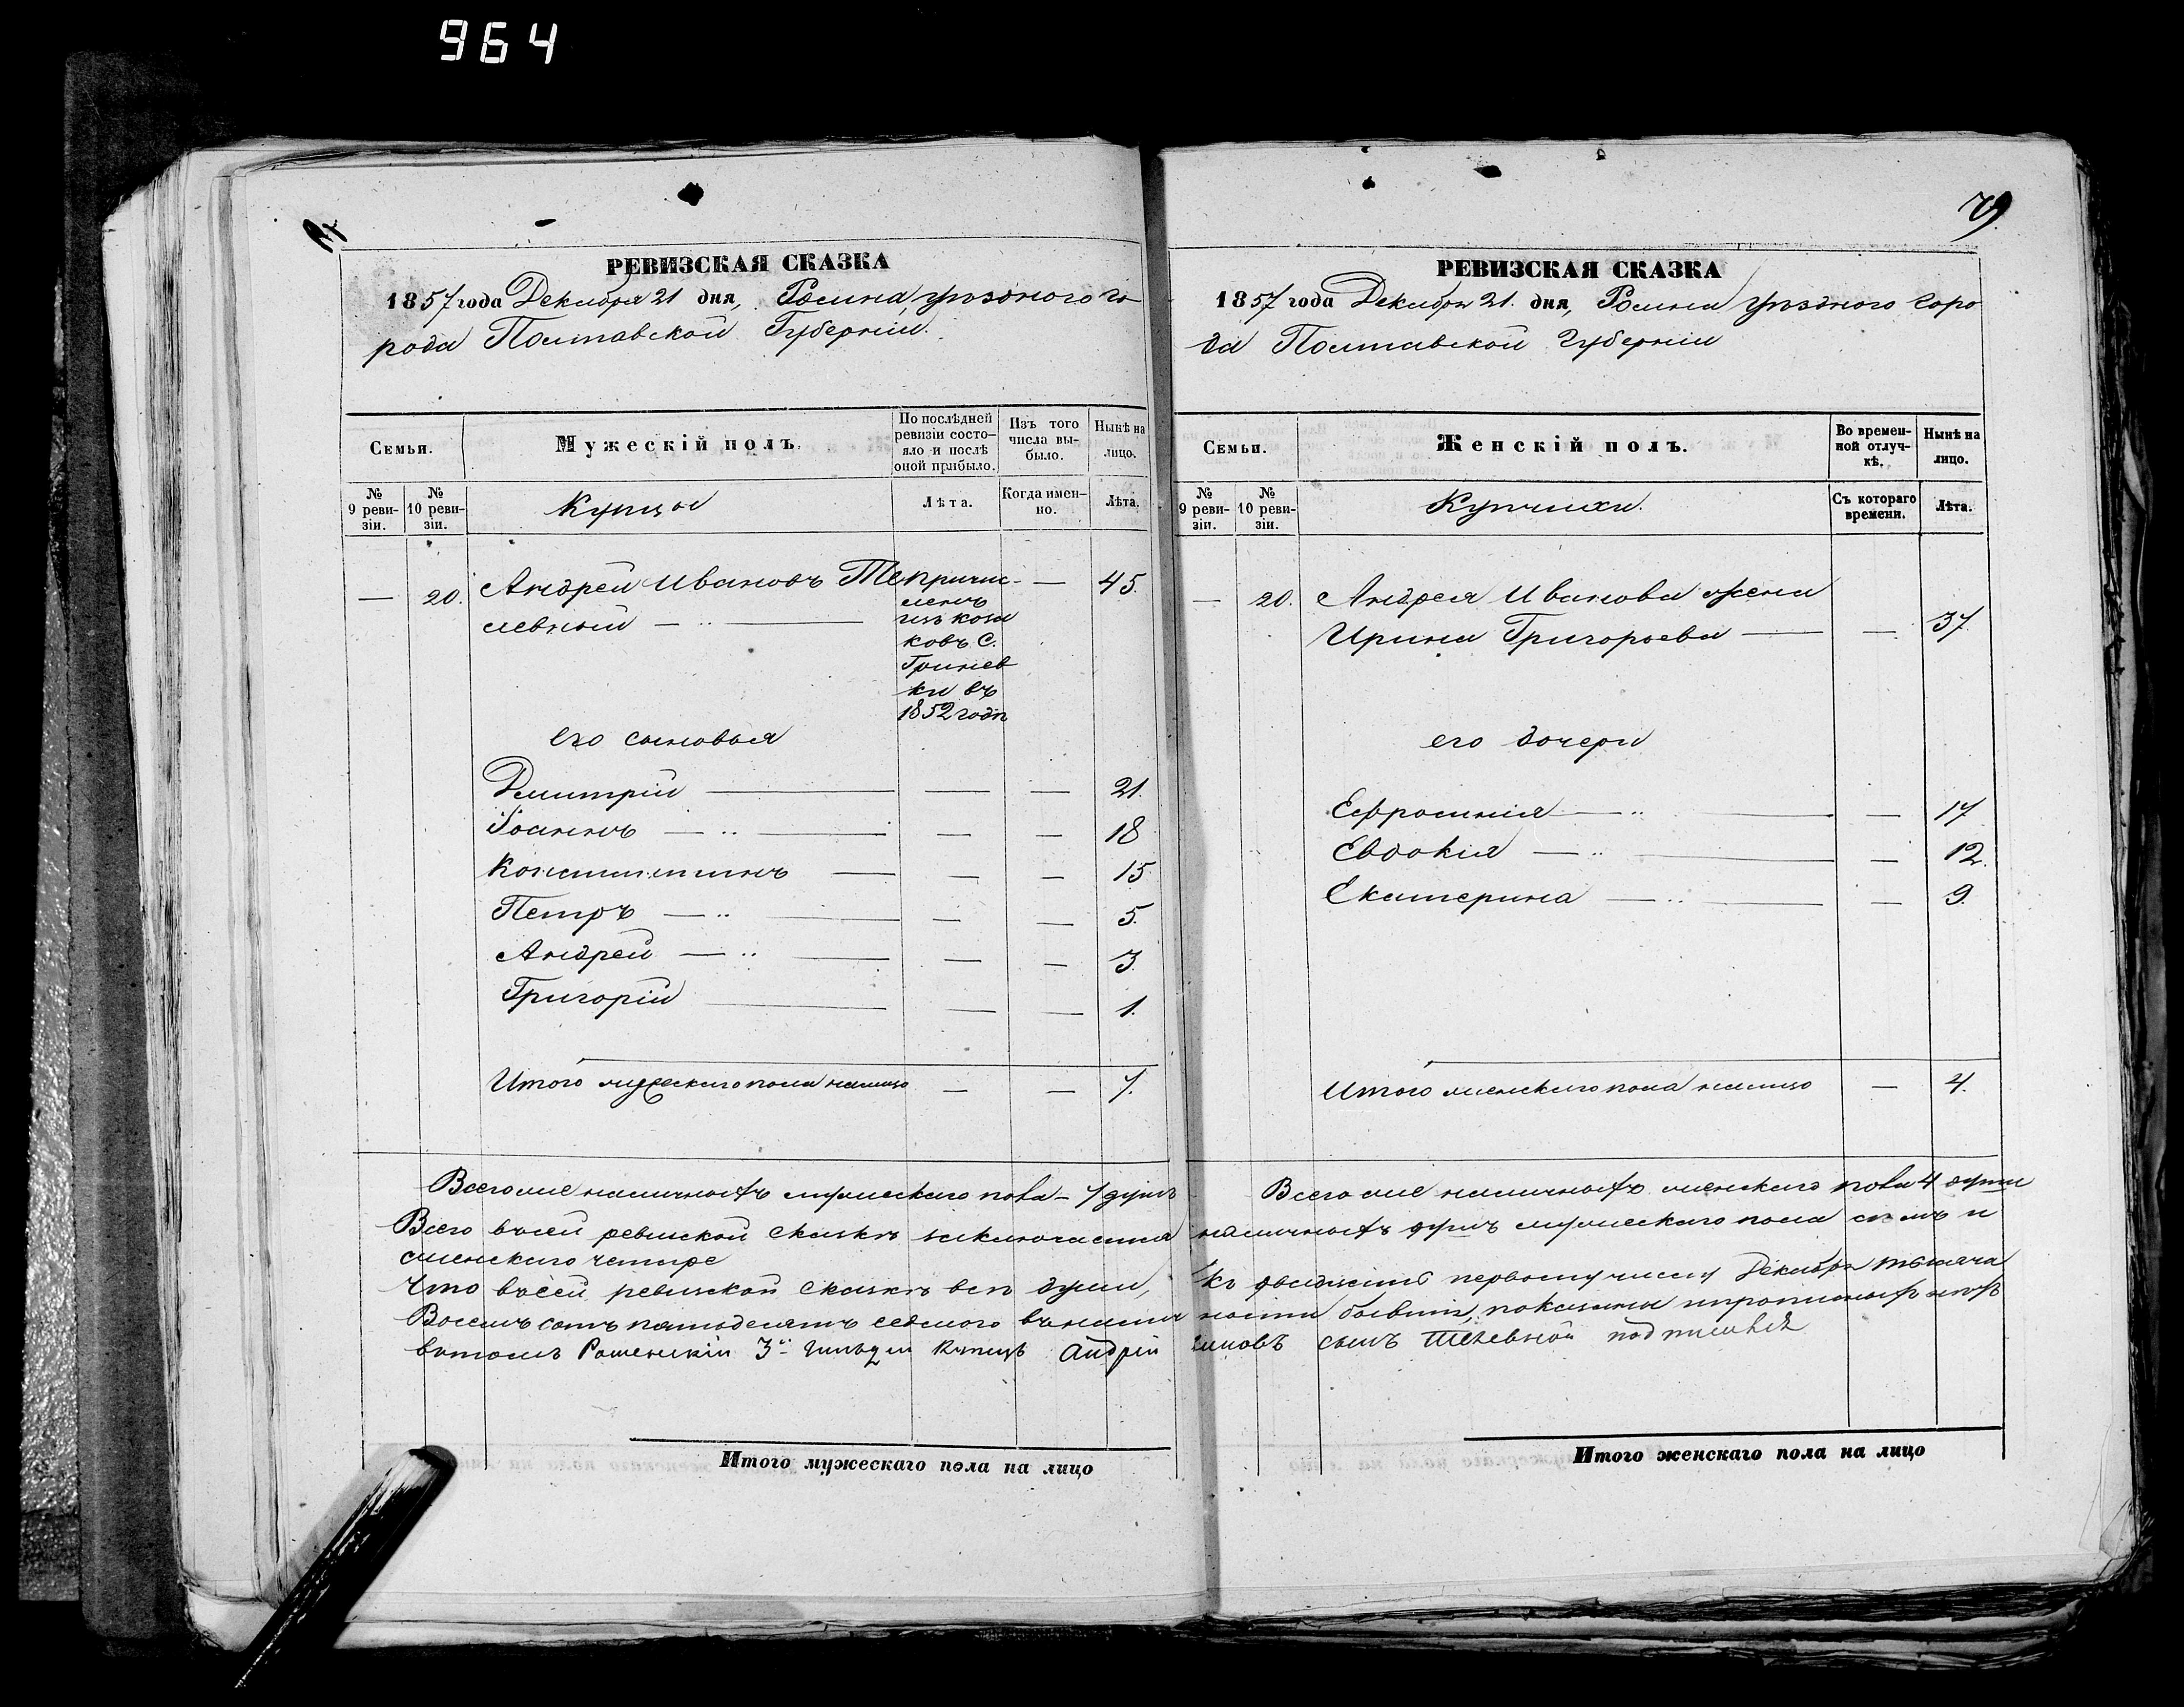 964
79.
РЕВИЗСКАЯ СКАЗКА
1857 года Декабря 21 дня, Ромна, уѣзднаго го-
рода Полтавской Губерніи.
Семьи.
Мужескій полъ.
По послѣдней ревизіи состо-яло и послѣ оной прибыло.
Изъ того числа вы-было.
Нынѣ на лицо.
№ 9 реви-зіи.
№ 10 реви-зіи.
Купцы
Лѣта.
Когда имен-но.
Лѣта.
— 20. Андрей Ивановъ Те причис- — 45.
левный — ленъ
изъ коза
ковъ С.
Гринев
ки въ
1852 годѣ
его сыновья
Дмитрій — — — 21.
Іоаннъ — — — 18
Константинъ — — — 15
Петръ — — — 5.
Андрей — — — 3.
Григорій — — — 1.
Итого мужескаго пола налицо — — 7.
Всего же наличность мужескаго пола – 7 душъ
Итого мужескаго пола на лицо
РЕВИЗСКАЯ СКАЗКА
1857 года Декабря 21. дня, Ромна уѣзднаго горо
да Полтавской Губерніи
Семьи.
Женскій полъ.
Во времен-ной отлуч-кѣ.
Нынѣ на лицо.
№ 9 реви-зіи.
№ 10 реви-зіи.
Купчихи.
Съ котораго времени.
Лѣта.
— 20. Андрея Иванова жена
Ирина Григорьева — — 37.
его дочери
Ефросинія — — 17
Евдокія — — 12.
Екатерина — — 9.
Итого женскаго пола налицо — 4.
Всего же наличность женскаго пола 4 души
Всего въ сей ревизской сказкѣ заключается наличность душъ мужескаго пола семь и
женскаго четыре
Что въ сей ревизской сказкѣ всѣ души, къ двадцать первому числу Декабря тысяча
Восемь сотъ пятьдесятъ седьмого въ наличности бывшія, показаны и
въ томъ Роменскій 3й Гильдіи Купецъ Андрій сынъ Телевной подписався
Итого женскаго пола на лицо